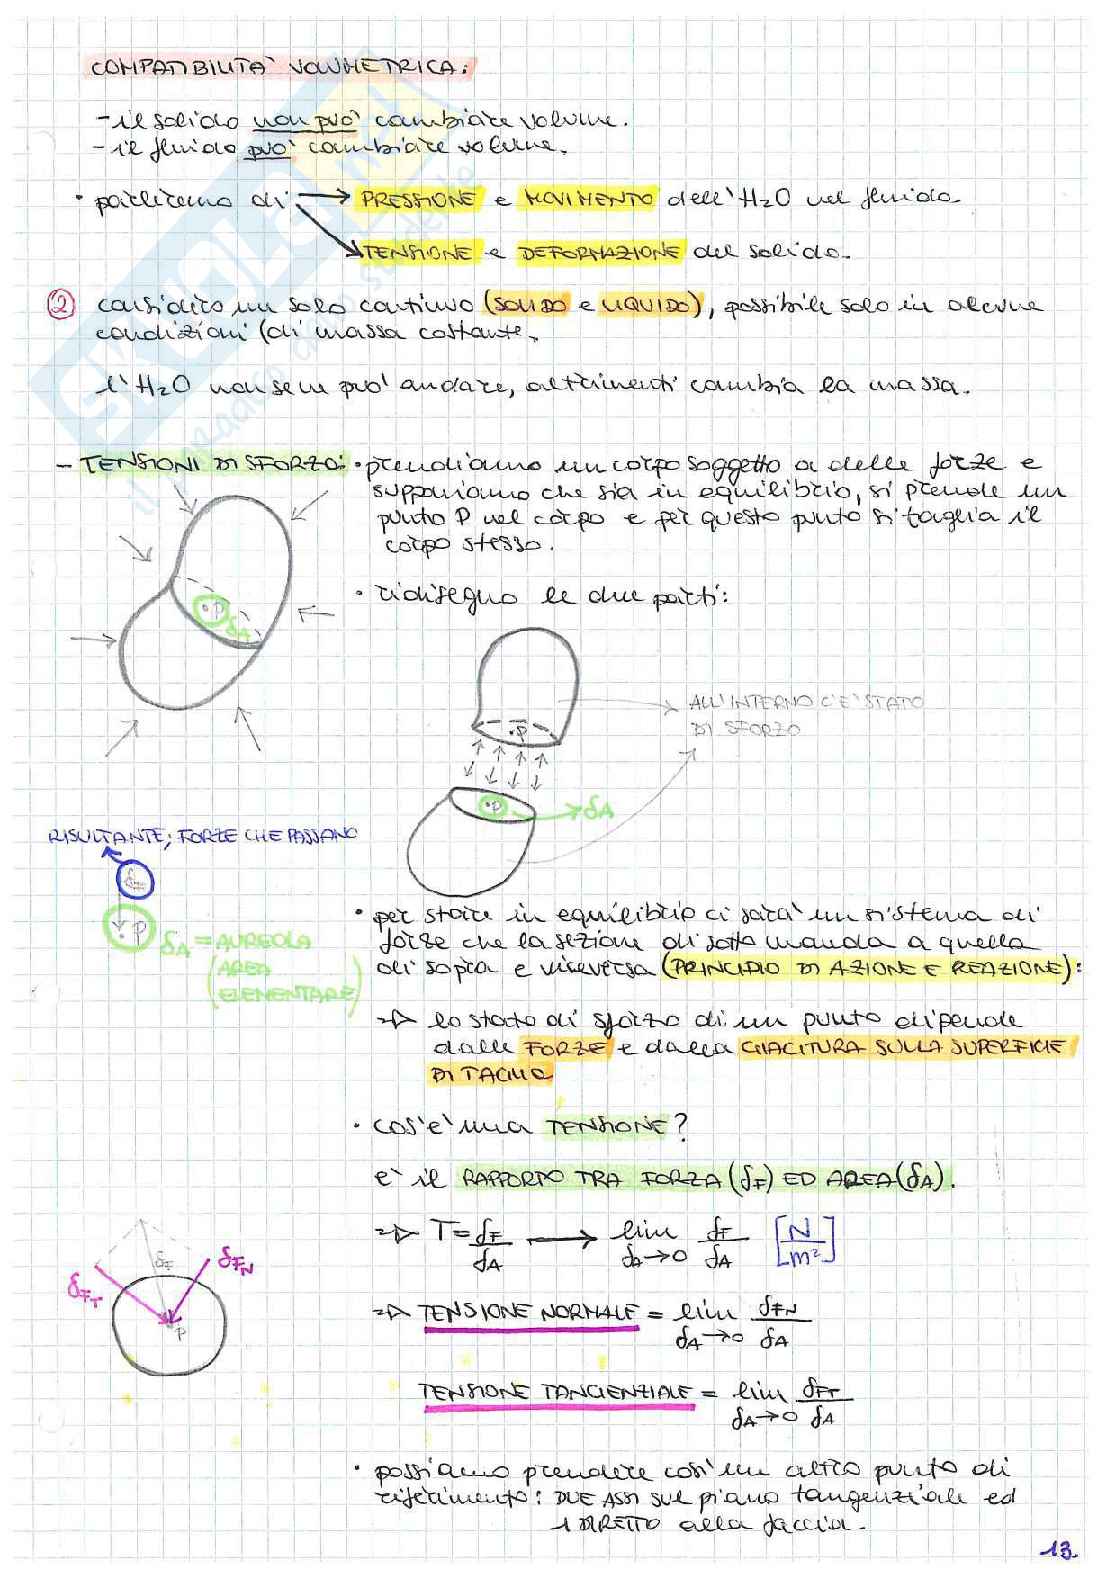 COMPATIBILITA' VOLUMETRICA:
- il solido non può cambiare volume.
- il fluido può cambiare volume.
• parliremo di → PRESSIONE e MOVIMENTO dell'H₂O nel fluido.
TENSIONE e DEFORMAZIONE del solido.
② considero un solo continuo (SOLIDO e LIQUIDO), possibile solo in alcune
condizioni (di massa costante.
l'H₂O non se ne può andare, altrimenti cambia la massa.
- TENSIONI DI SFORZO: • prendiamo un corpo soggetto a delle forze e
supponiamo che sia in equilibrio, si prende un
punto P nel corpo e per questo punto si taglia il
corpo stesso.
• ridisegno le due parti:
P δA
ALL'INTERNO C'È STATO
DI SFORZO
P
P δA
RISULTANTE; FORZE CHE PASSANO
P δA = AUREOLA
(AREA
ELEMENTARE)
• per stare in equilibrio ci sarà un sistema di
forze che la sezione di sotto manda a quella
di sopra e viceversa (PRINCIPIO DI AZIONE E REAZIONE):
⇒ lo stato di sforzo di un punto dipende
dalle FORZE e dalla GIACITURA SULLA SUPERFICIE
DI TAGLIO
• cos'è una TENSIONE?
è il RAPPORTO TRA FORZA (δF) ED AREA (δA).
⇒ T = δF/δA → lim δA→0 δF/δA [N/m²]
δFT δF δFN
P
⇒ TENSIONE NORMALE = lim δA→0 δFN/δA
TENSIONE TANGENZIALE = lim δA→0 δFT/δA
• possiamo prendere così un altro punto di
riferimento: DUE ASSI sul piano tangenziale ed
1 DIRETTO alla faccia.
13